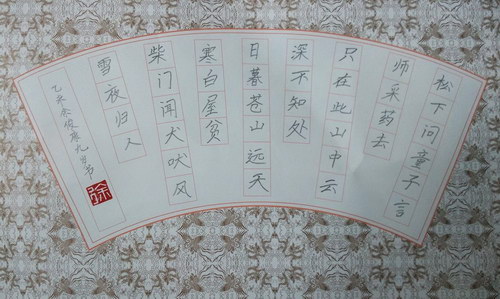 松下问童子言
师采药去
只在此山中云
深不知处
日暮苍山远天
寒白屋贫
柴门闻犬吠风
雪夜归人
乙未 九岁书
徐